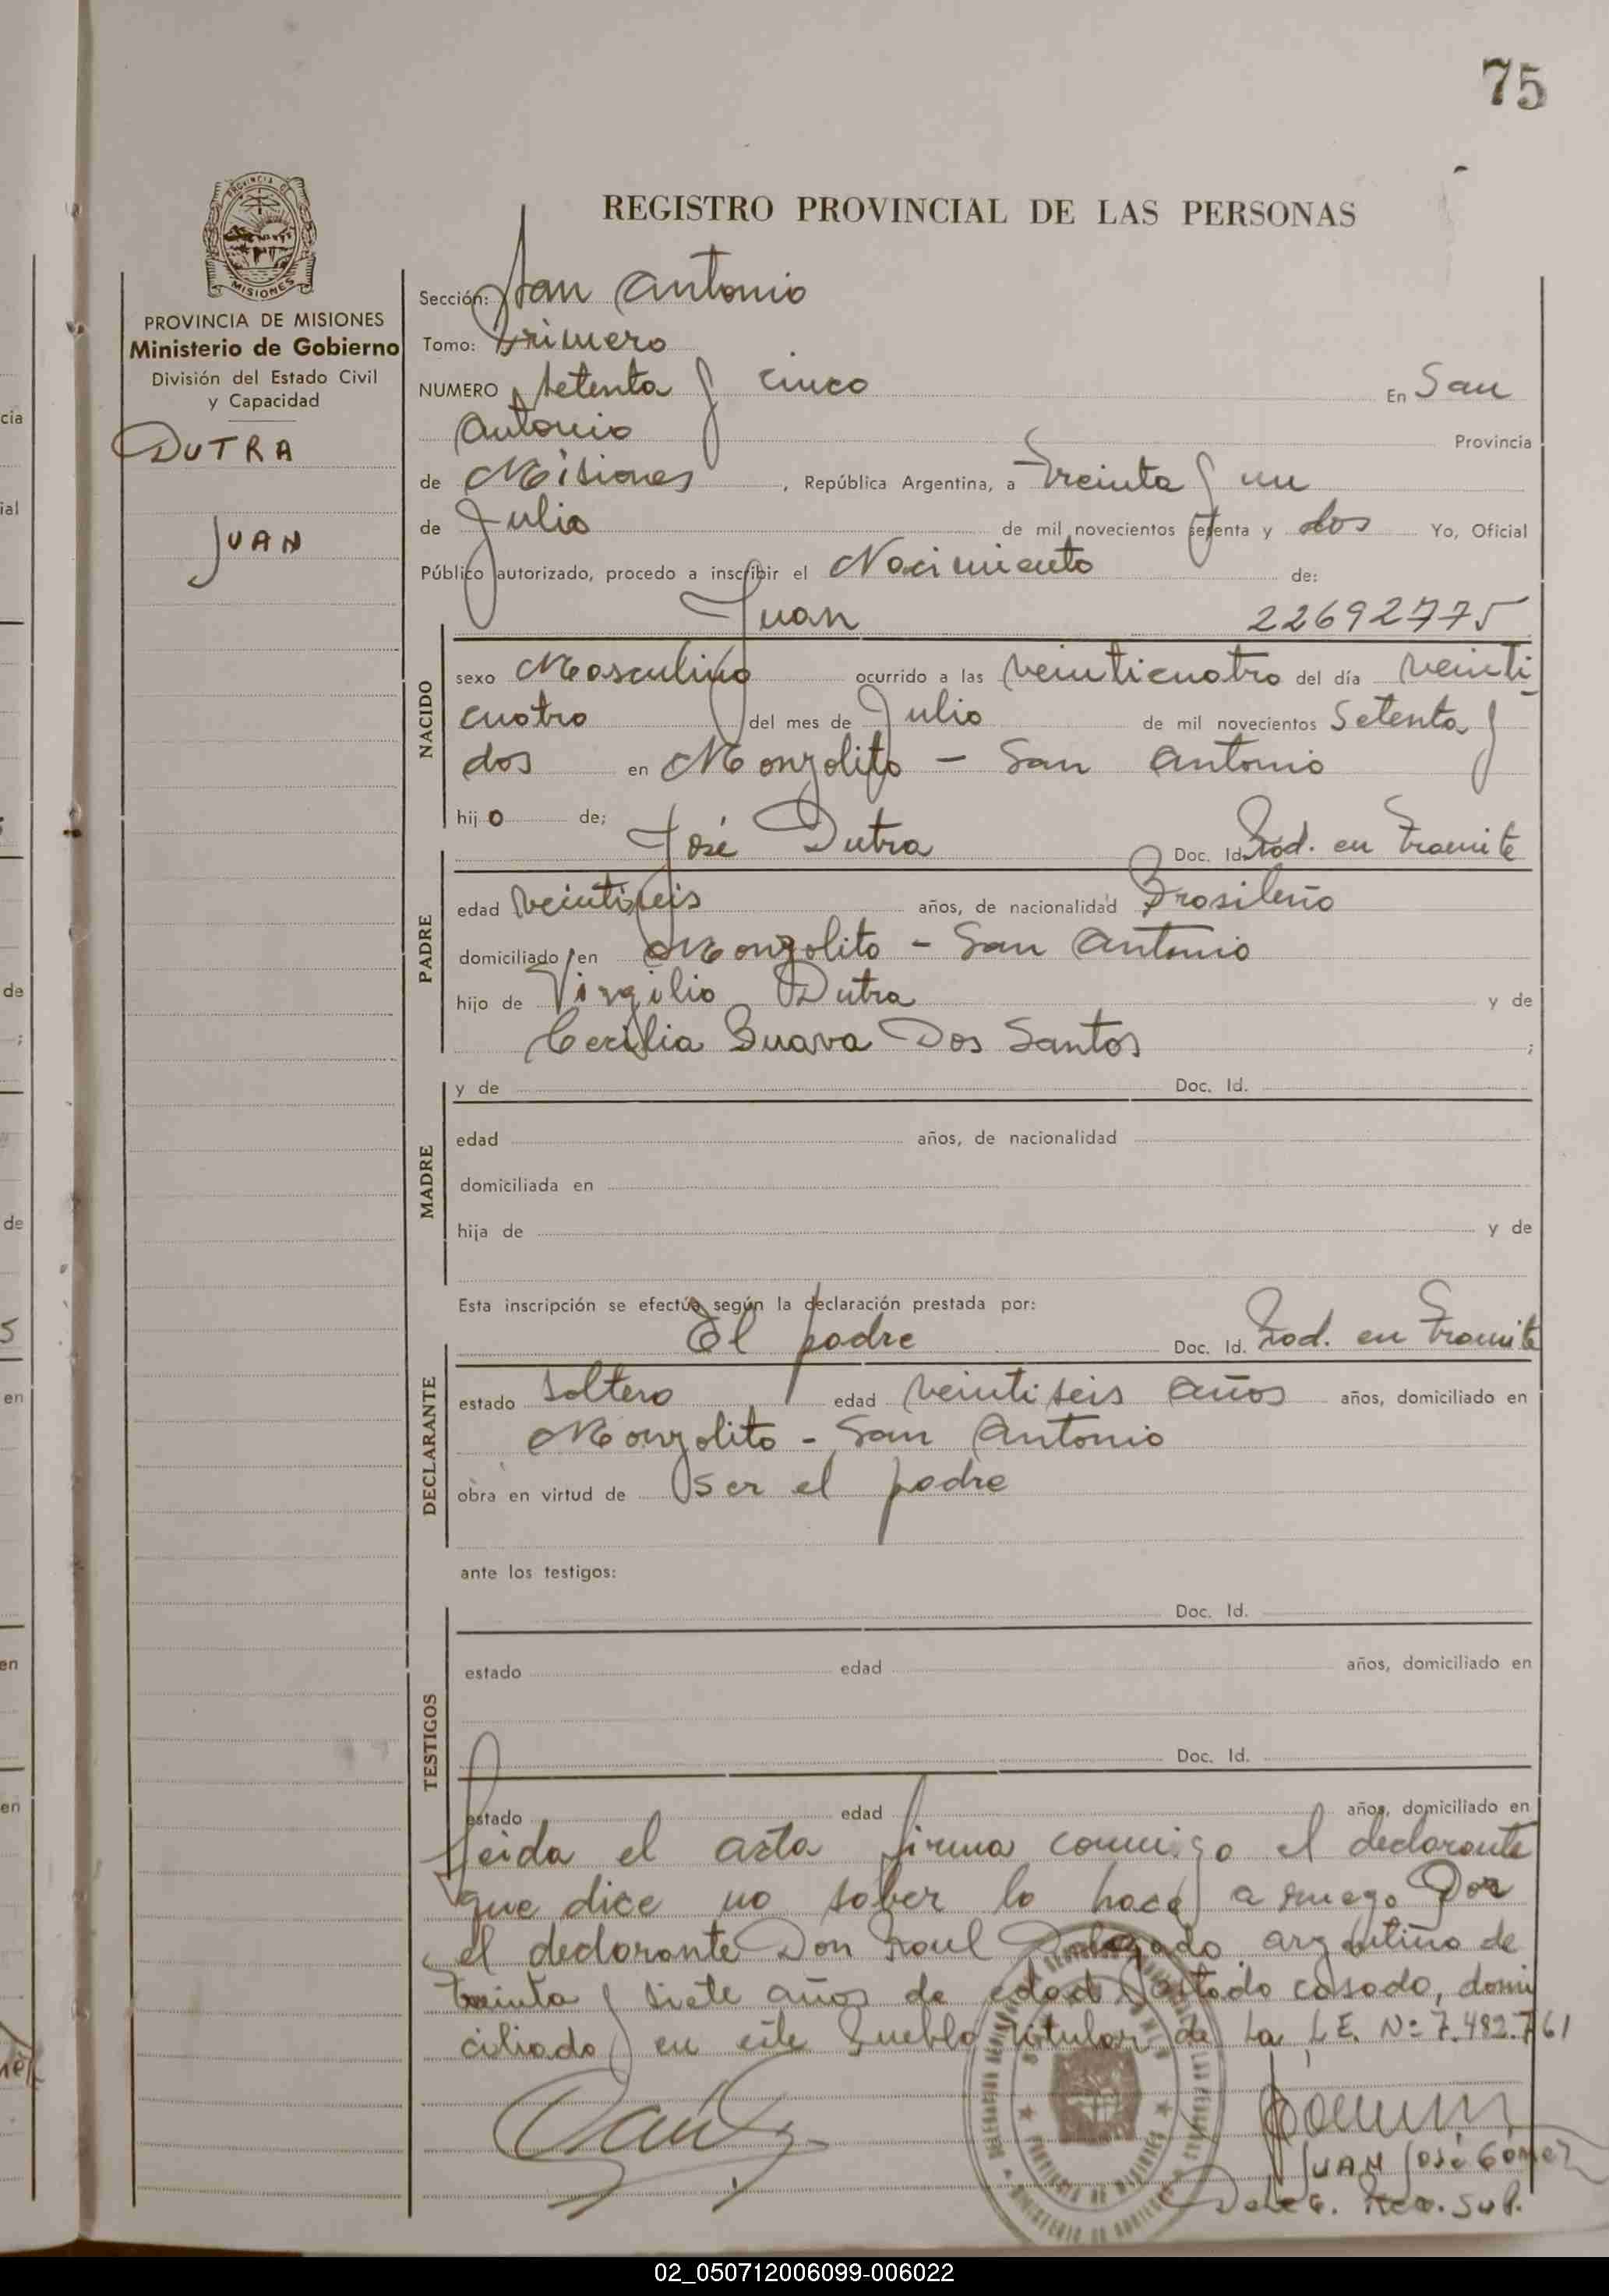 75
REGISTRO PROVINCIAL DE LAS PERSONAS
PROVINCIA DE
MISIONES
PROVINCIA DE MISIONES
Ministerio de Gobierno
División del Estado Civil
y Capacidad
DUTRA
JUAN
Sección: San Antonio
Tomo: Primero
NUMERO setenta y cinco En San
Antonio Provincia
de Misiones, República Argentina, a Treinta y un
de Julio de mil novecientos setenta y dos Yo, Oficial
Público autorizado, procedo a inscribir el Nacimiento de:
Juan 22692775
NACIDO
sexo Masculino ocurrido a las veinticuatro del día veinti
cuatro del mes de Julio de mil novecientos Setenta y
dos en Monzolito - San Antonio
hijo de; José Dutra Doc. Id. Rad. en Tramite
PADRE
edad veintiseis años, de nacionalidad Brasileño
domiciliado en Monzolito - San Antonio
hijo de Virgilio Dutra y de
Cecilia Suava Dos Santos ;
MADRE
y de Doc. Id.
edad años, de nacionalidad
domiciliada en
hija de y de
Esta inscripción se efectúa según la declaración prestada por:
El padre Doc. Id. Rad. en Tramite
DECLARANTE
estado soltero edad veintiseis años años, domiciliado en
Monzolito - San Antonio
obra en virtud de ser el padre
ante los testigos:
TESTIGOS
Doc. Id.
estado edad años, domiciliado en
Doc. Id.
estado edad años, domiciliado en
Leida el acta firma conmigo el declarante
que dice no saber lo hace a ruego Por
el declarante Don Raul Delgado argentino de
treinta y siete años de edad estado casado, domi
ciliado en este Pueblo titular de La L.E. Nº 7.482.761
JUAN José Gómez
Deleg. Reg. Sup.
02_050712006099-006022